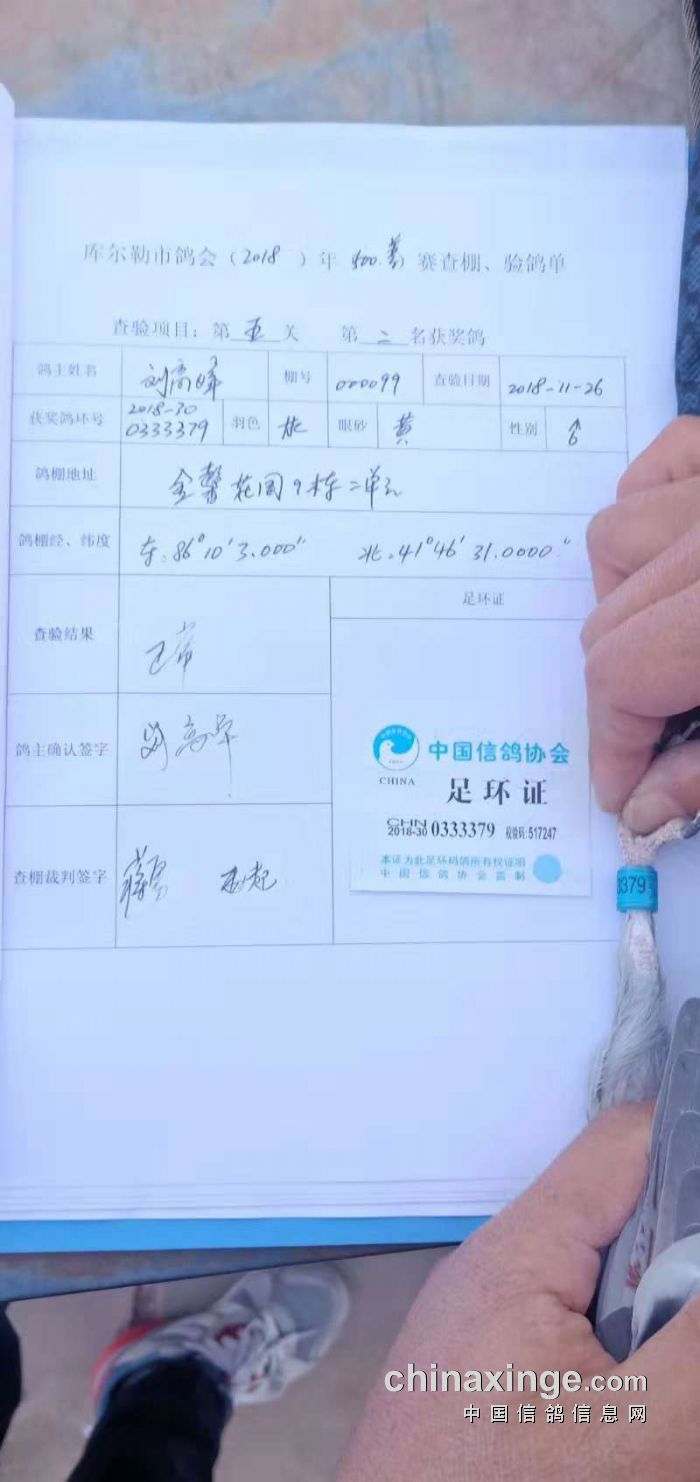 库尔勒市鸽会（2018 ）年 500 赛查棚、验鸽单
查验项目：第 五 关 第 二 名获奖鸽
鸽主姓名 刘高峰 棚号 000099 查验日期 2018-11-26
获奖鸽环号 2018-30 0333379 羽色 眼砂 黄 性别 ♂
鸽棚地址 金馨花园9栋二单元
鸽棚经、纬度 东:86°10′3.000″ 北:41°46′31.0000″
足环证
查验结果 正常
鸽主确认签字 刘高峰
中国信鸽协会
CHINA
足环证
CHN
2018-30 0333379 校验码:517247
本证为此足环码鸽所有权证明
中国信鸽协会监制
查棚裁判签字
3379
chinaxinge.com
中国信鸽信息网